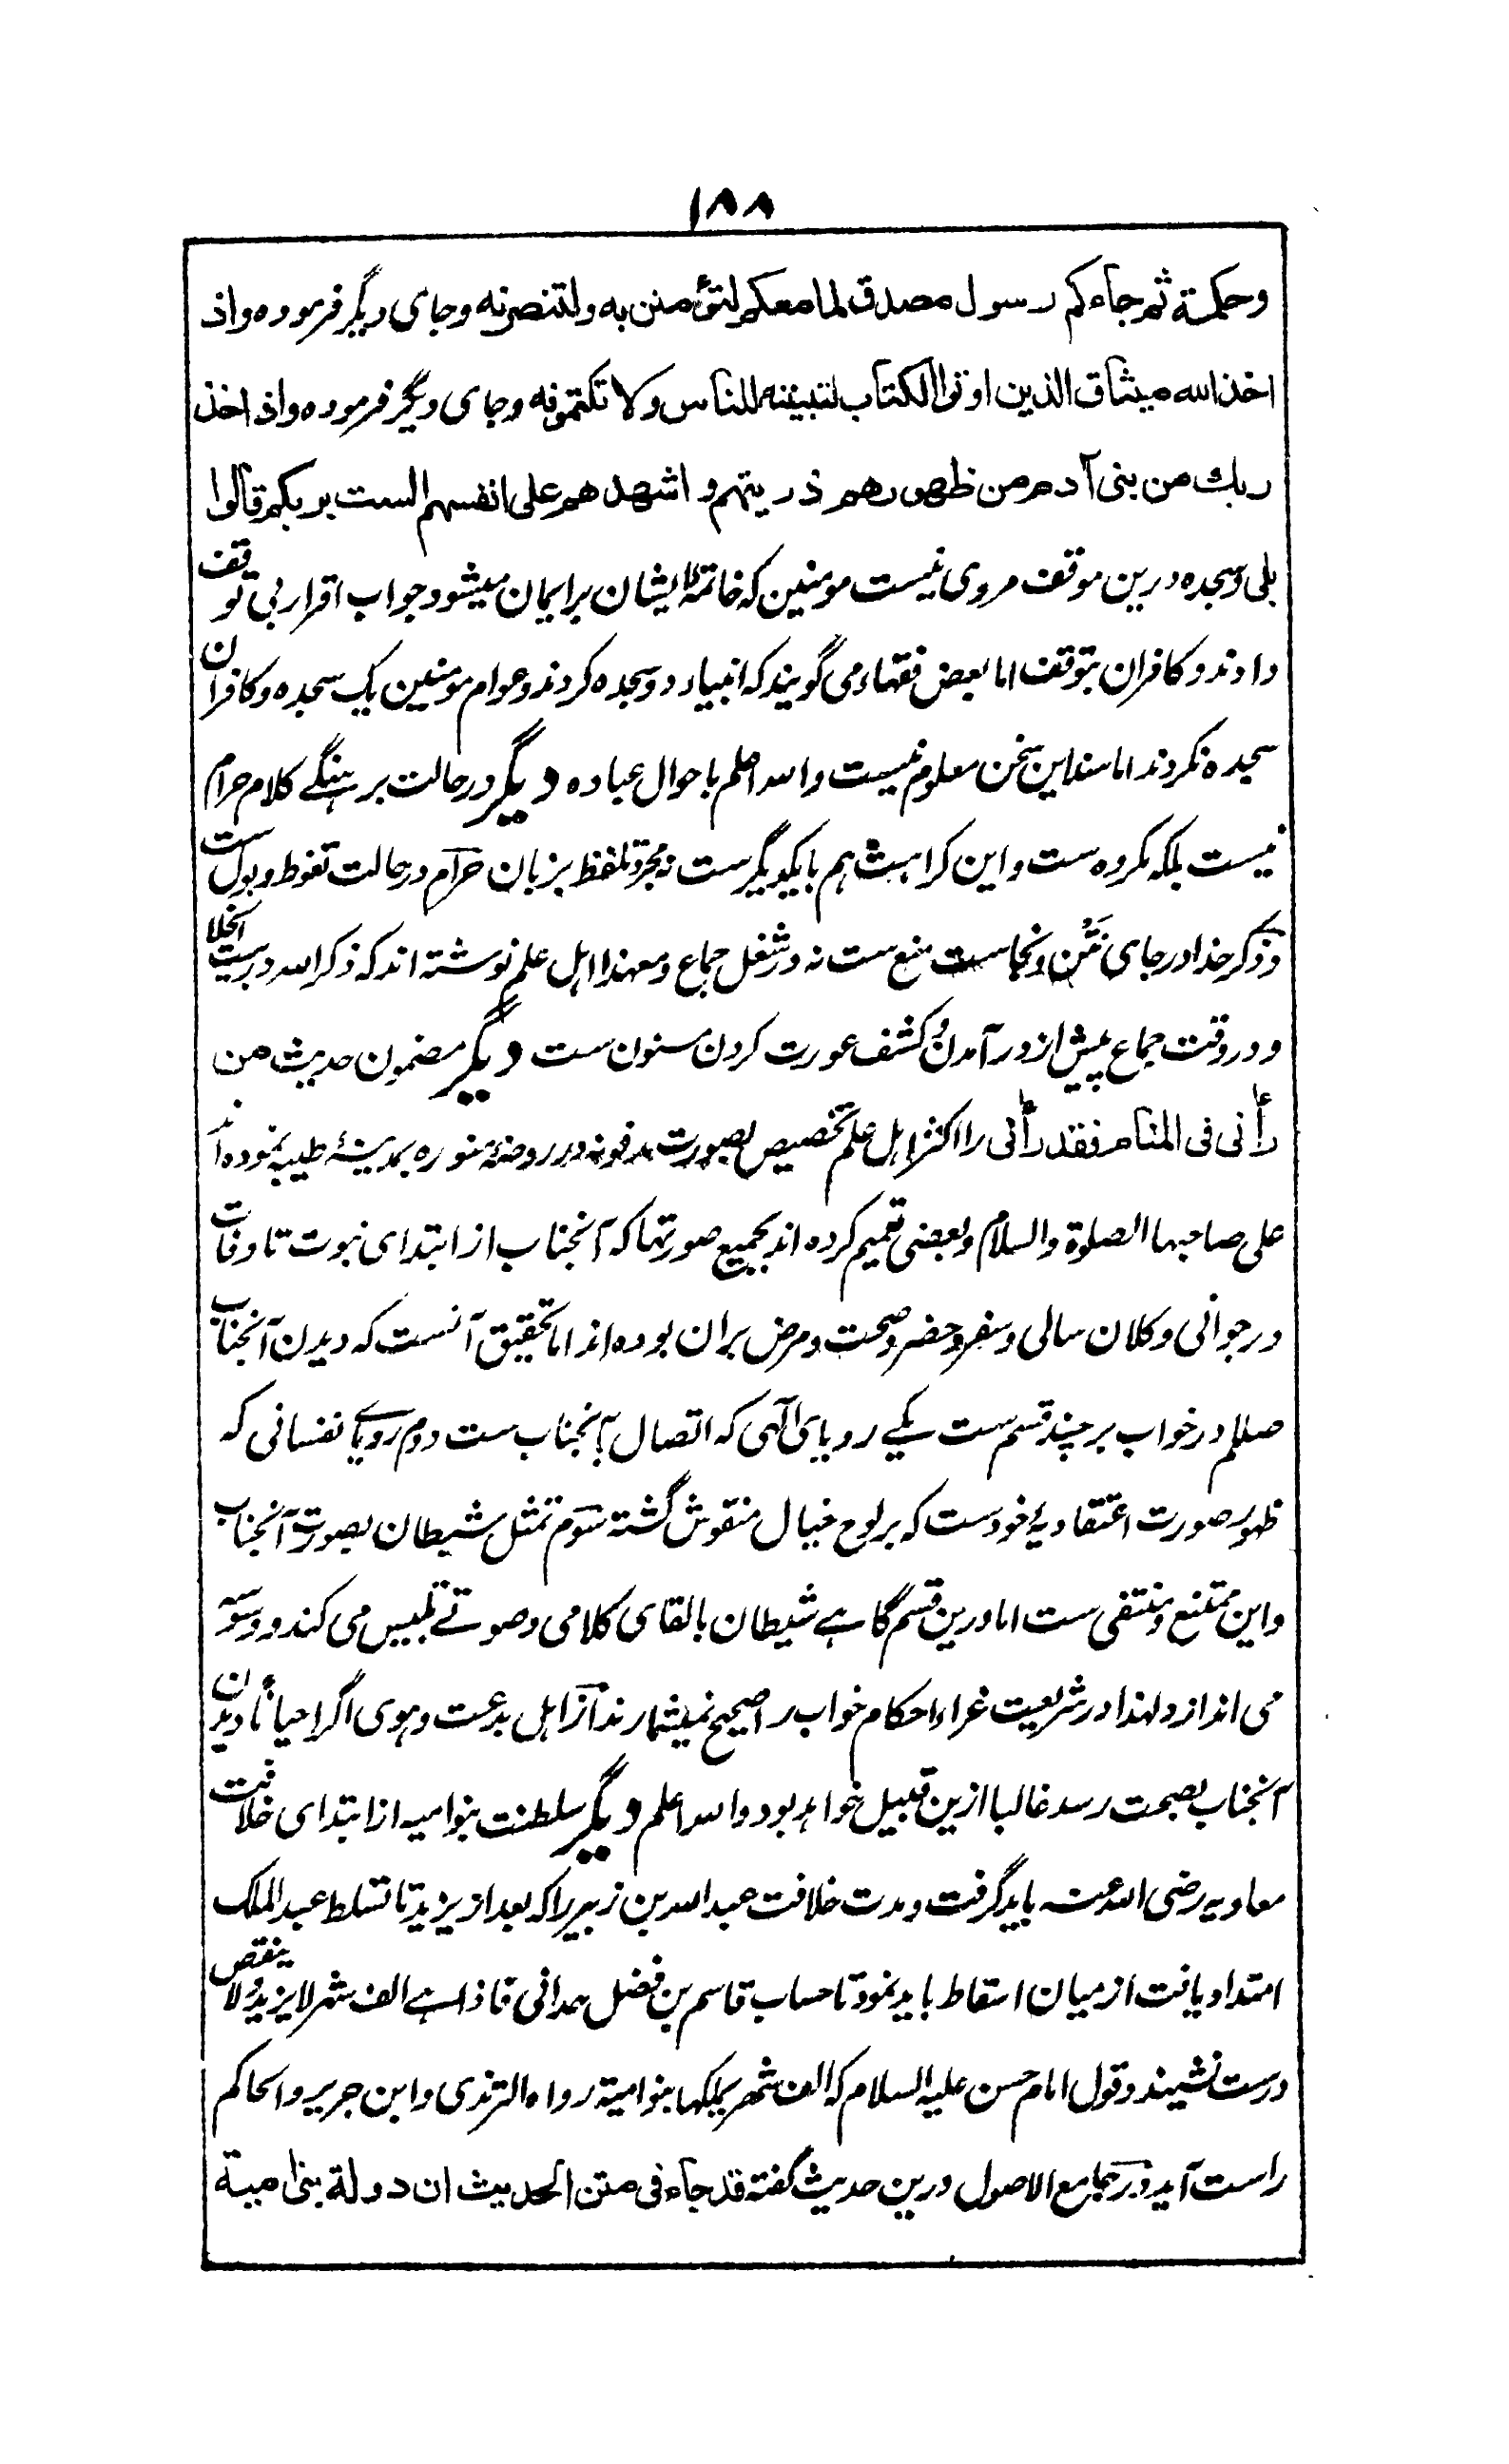 ۱۸۸
وحکمة ثم جاءکم رسول مصدق لما معکم لتؤمنن به ولتنصرنه وجای دیگر فرموده واذ
اخذ الله میثاق الذین اوتوا الکتاب لتبیننه للناس ولا تکتمونه وجای دیگر فرموده واذ اخذ
ربك من بنی آدم من ظهورهم ذریتهم واشهدهم علی انفسهم الست بربکم قالوا
بلی وسجده درین موقف مروی نیست مومنین که خاتمۀ ایشان بر ایمان میشود جواب اقرار بی توقف
دادند و کافران بتوقف اما بعض فقهاء می گویند که انبیاء دو سجده کردند و عوام مومنین یک سجده و کافران
سجده نکردند اما سند این سخن معلوم نیست والله اعلم باحوال عباده دیگر در حالت برهنگے کلام حرام
نیست بلکه مکروه ست و این کراهت هم بایکدیگر ست نه مجرد تلفظ بزبان حرام در حالت تغوط و بول ست
و ذکر خدا در جای نتن و نجاست منع ست نه در شغل جماع و معهذا اهل علم نوشته اند که ذکر الله در بیت الخلا
و در وقت جماع پیش از در آمدن و کشف عورت کردن مسنون ست دیگر مضمون حدیث من
رأنی فی المنام فقد رأنی را اکثر اهل علم تخصیص بصورت مدفونه در روضۀ منوره بمدینۀ طیبه نموده اند
علی صاحبها الصلوة والسلام و بعضی تعمیم کرده اند بجمیع صورتها که آنجناب از ابتدای نبوت تا وفات
در جوانی و کلان سالی و سفر و حضر و صحت و مرض بران بوده اند اما تحقیق آنست که دیدن آنجناب
صلعم در خواب بر چند قسم ست یکے رویای آلهی که اتصال بآنجناب ست دوم رویاے نفسانی که
ظهور صورت اعتقادیۀ خودست که بر لوح خیال منقوش گشته سوم تمثل شیطان بصورت آنجناب
و این ممتنع و منتفی ست اما درین قسم گاہے شیطان بالقای کلامی و صوتے تلبیس می کند و وسوسه
می اندازد ولهذا در شریعت غراء احکام خواب را صحیح نمیشمارند از اهل بدعت و هوی اگر احیاناً دیدن
آنجناب بصحت رسد غالبا ازین قبیل خواهد بود والله اعلم دیگر سلطنت بنوامیه از ابتدای خلافت
معاویه رضی الله عنه باید گرفت و مدت خلافت عبدالله بن زبیر را که بعد از یزید تا تسلط عبدالملک
امتداد یافت از میان اسقاط باید نمود تا حساب قاسم بن فضل حمدانی فاذا هے الف شهر لا یزید ولا ینقص
درست نشیند و قول امام حسن علیه السلام که الف شهر یملکها بنو امیة رواه الترمذی وابن جریر والحاکم
راست آید و در جامع الاصول درین حدیث گفته قد جاء فی متن الحدیث ان دولة بنی امیة